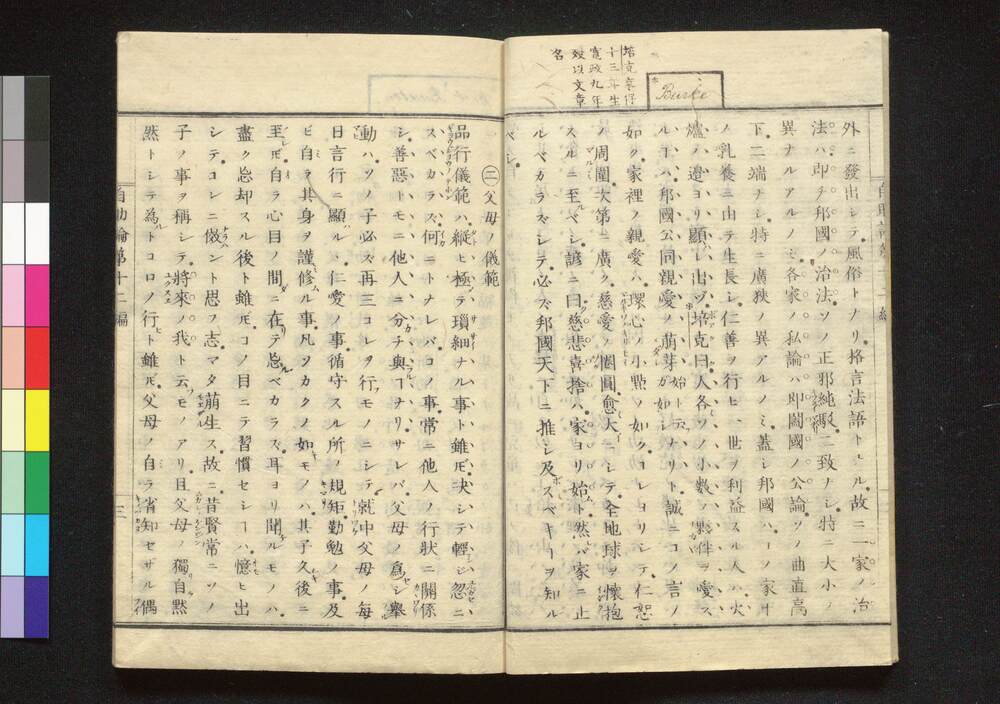 培克享保
十三年生
寛政九年
歿以文章
名
Burke
外ニ發出シテ風俗トナリ格言法語トナル故ニ一家ノ治
法ハ即チ邦國ノ治法ソノ正邪純駁二致ナシ特ニ大小ノ
異ナルアルノミ各家ノ私論ハ即闔國ノ公論ソノ曲直高
下二端ナシ特ニ廣狹ノ異アルノミ蓋シ邦國ハ一ノ家ヰ
ノ乳養ニ由テ生長シ仁善ヲ行ヒ一世ヲ利益スル人ハ火
爐ハ邉ヨリ顯レ出ヅ培克曰人各ソノ小數ノ夥伴ヲ愛ス
ルヿハ邦國公同親愛ノ萌芽ガ如シ始ト云ナリト誠ニコノ言ノ
如ク家裡ノ親愛ハ環心ノ小㸃ノ如クコレヨリシテ仁恕
ノ周圍次第ニ廣ク慈愛ノ圈圓愈大ニシテ全地球ヲ懷抱
スルニ至ルベシ諺ニ曰慈悲喜捨ハ家ヨリ始ト然レバ家ニ止
ルベカラズシテ必ズ邦國天下ニ推シ及スベキヿヲ知ル
ベシ
㊁父母ノ儀範
品行儀範ハ縱ヒ極テ瑣細ナル事ト雖𪜈决シテ輕シ忽ニ
スベカラズ何ニトナレバコノ事常ニ他人ノ行狀ニ關係
シ善惡トモニ他人ニ分チ與フルヿヲリサレバ父母ノ爲シ擧
動ハソノ子必ズ再三コレヲ行フモノニシテ就中父母ノ毎
日言行ニ顯ハレ仁愛ノ事循守スル所ノ規矩勤勉ノ事及
ビ自ラ其身ヲ謹修ムル事凡ソカクノ如キモノハ其子久後ニ
至レ𪜈自ラ心目ノ間ニ在リテ忘ルベカラズ耳ヨリ聞ルモノハ
盡ク忘却スル後ト雖𪜈コノ目ニテ習慣セシヿハ憶ヒ出
シテコレニ傚ハント思フ志マタ萌生ス故ニ昔賢常ニソノ
子ノ事ヲ稱シテ將來ノ我ト云フモノアリ且父母ノ獨自默
然トシテ為ルトコロノ行ヒト雖𪜈父母ノ自ラ省知セザル偶
自助論第十二編
三